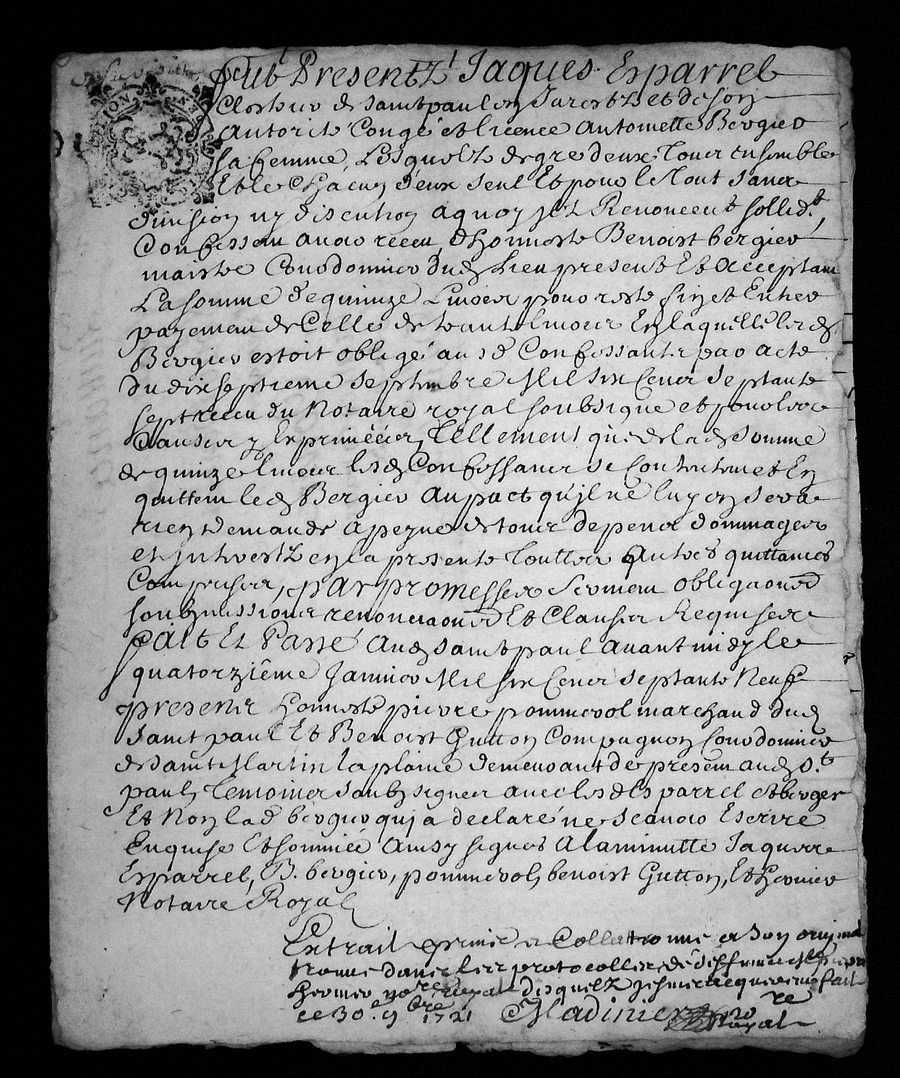 furt Presentz Jaques Esparrel
Clostrier de sainct paul en Jarest Et de son
Autorite Congé et licence Antoinette Bergier
sa femme, Lesquelz de gre deux Tous Ensemble
Et le Chacun deux seul Et pour le Tout sans
division ny discution a quoy ilz Renoncent sollidt
Confessent avoir receu d'honneste Benoist bergier
maistre Cordonnier dud lieu present Et acceptant
La somme de quinze Livres pour reste fin et Entier
payement de Celle de trante livres En laquelle led
Bergier estoit obligé ausd Confessants par acte
du dix septieme septembre Mil six Cens septante
sept receu du Notaire royal soubsigne et pour les
Causes y Expriméés, Tellement que de lad somme
de quinze livres lesd Confessans se Contentent et En
quittent led Bergier Au pact qu'il ne luy en sera
rien demande a peyne de tous depens dommages
et Interestz en la presente Touttes Autres quittances
Comprises, par promesses serment obligaons
soubmissions renonciaons Et Clauses Requises
fait Et Passé Aud sainct paul Avant midy le
quatorzième Janvier Mil six Cens septante Neuf
presens honneste pierre pommerol marchand dud
sainct paul Et Benoist Gutton Compagnon Cordonnier
de sainct Martin la plaine demeurant de present aud st
paul Temoins soubsignes avec lesd Esparrel et berger
Et Non lad bergier qui a declaré ne scavoir Escrire
Enquise Et sommée Ainsy signes A la minutte Jaques
Esparrel, B. bergier, pommerol, benoist Gutton, Et hervier
Notaire Royal
Extrait prins et Collationne a son original
trouve dans les protocolles de deffunct
hervier nore royal desquelz je suis fait
ce 30e 9bre 1721 Madinier nore
Royal